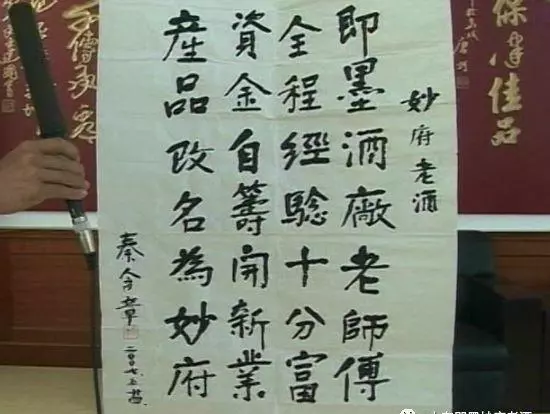 妙府老酒
即墨酒廠老師傅
全程經驗十分富
資金自籌開新業
產品改名為妙府
秦含章
二〇〇七.五.
保健佳品